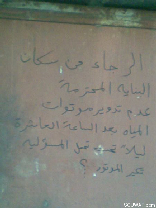 الرجاء من سكان
البناية المحترمة
عدم تدوير موتورات
المياه بعد الساعة العاشرة
ليلا تحت
تغير الموتور ؟